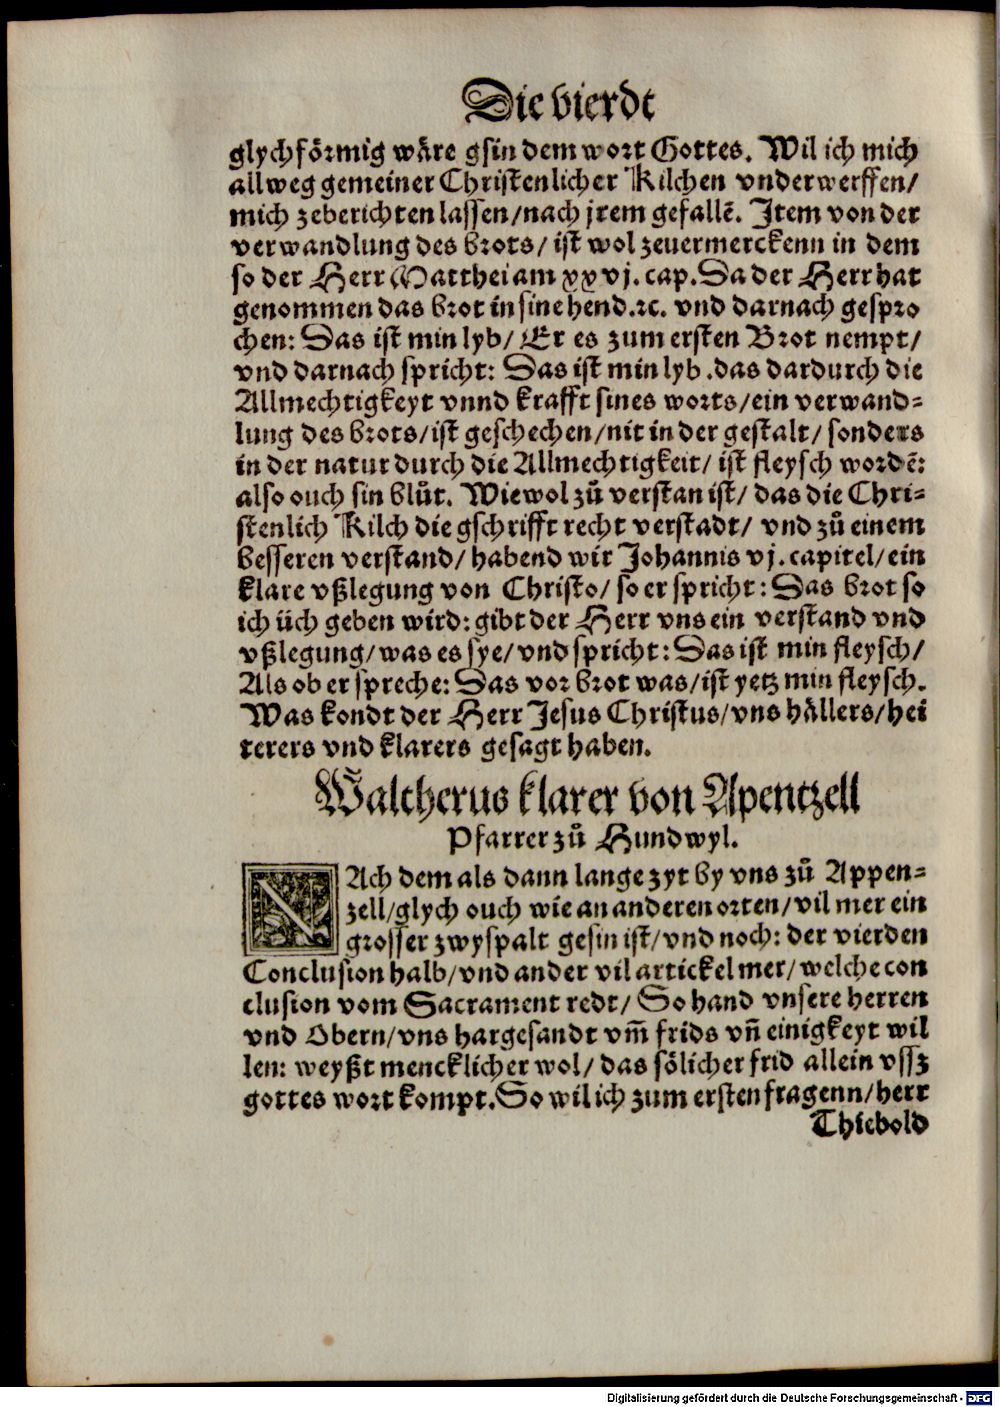 Die vierdt
glychförmig wäre gsin dem wort Gottes. Wil ich mich
allweg gemeiner Christenlicher Kilchen vnderwerffen/
mich zeberichten lassen/nach jrem gefallē. Item von der
verwandlung des brots/ ist wol zeuermerckenn in dem
so der Herr Matthei am xxvj. cap. Da der Herr hat
genommen das brot in sine hend. ꝛc. vnd darnach gespro
chen: Das ist min lyb/ Er es zum ersten Brot nempt/
vnd darnach spricht: Das ist min lyb. das dardurch die
Allmechtigkeyt vnnd krafft sines worts/ein verwand⸗
lung des brots/ist geschechen/nit in der gestalt/ sonders
in der natur durch die Allmechtigkeit/ ist fleysch wordē:
also ouch sin blůt. Wiewol zů verstan ist/ das die Chri⸗
stenlich Kilch die gschrifft recht verstadt/ vnd zů einem
besseren verstand/ habend wir Johannis vj. capitel/ein
klare vßlegung von Christo/ so er spricht: Das brot so
ich üch geben wird: gibt der Herr vns ein verstand vnd
vßlegung/was es sye/vnd spricht: Das ist min fleysch/
Als ob er spreche: Das vor brot was/ist yetz min fleysch.
Was kondt der Herr Jesus Christus/vns hällers/hei
terers vnd klarers gesagt haben.
Waltherus klarer von Apentzell
Pfarrer zů Hundwyl.
NAch dem als dann lange zyt by vns zů Appen⸗
zell/glych ouch wie an anderen orten/vil mer ein
grosser zwyspalt gesin ist/vnd noch: der vierden
Conclusion halb/vnd ander vil artickel mer/welche con
clusion vom Sacrament redt/ So hand vnsere herren
vnd Obern/vns hargesandt vm̄ frids vn̄ einigkeyt wil
len: weyßt mencklicher wol/ das sölicher frid allein vssz
gottes wort kompt. So wil ich zum ersten fragenn/herr
Thiebold
Digitalisierung gefördert durch die Deutsche Forschungsgemeinschaft - DFG